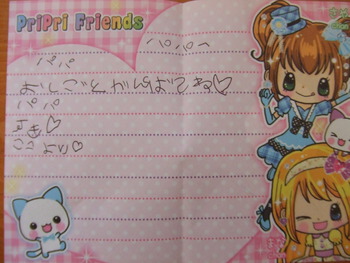 PriPri Friends
パパパー
パパ
おしごとがんばってね♡
パパ
すき♡
ココより♡